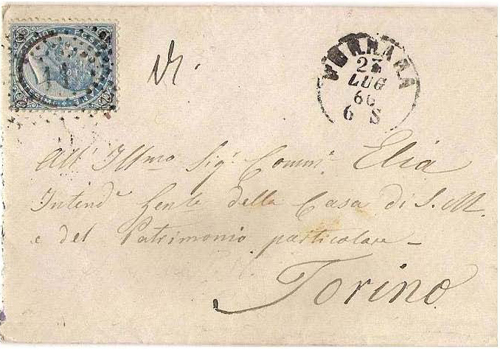 FERRARA
LUG
6 S
All' Illmo Sig.r Comm. Elia
Intend.e Gen.te della Casa di S. M.
e del Patrimonio particolare -
Torino